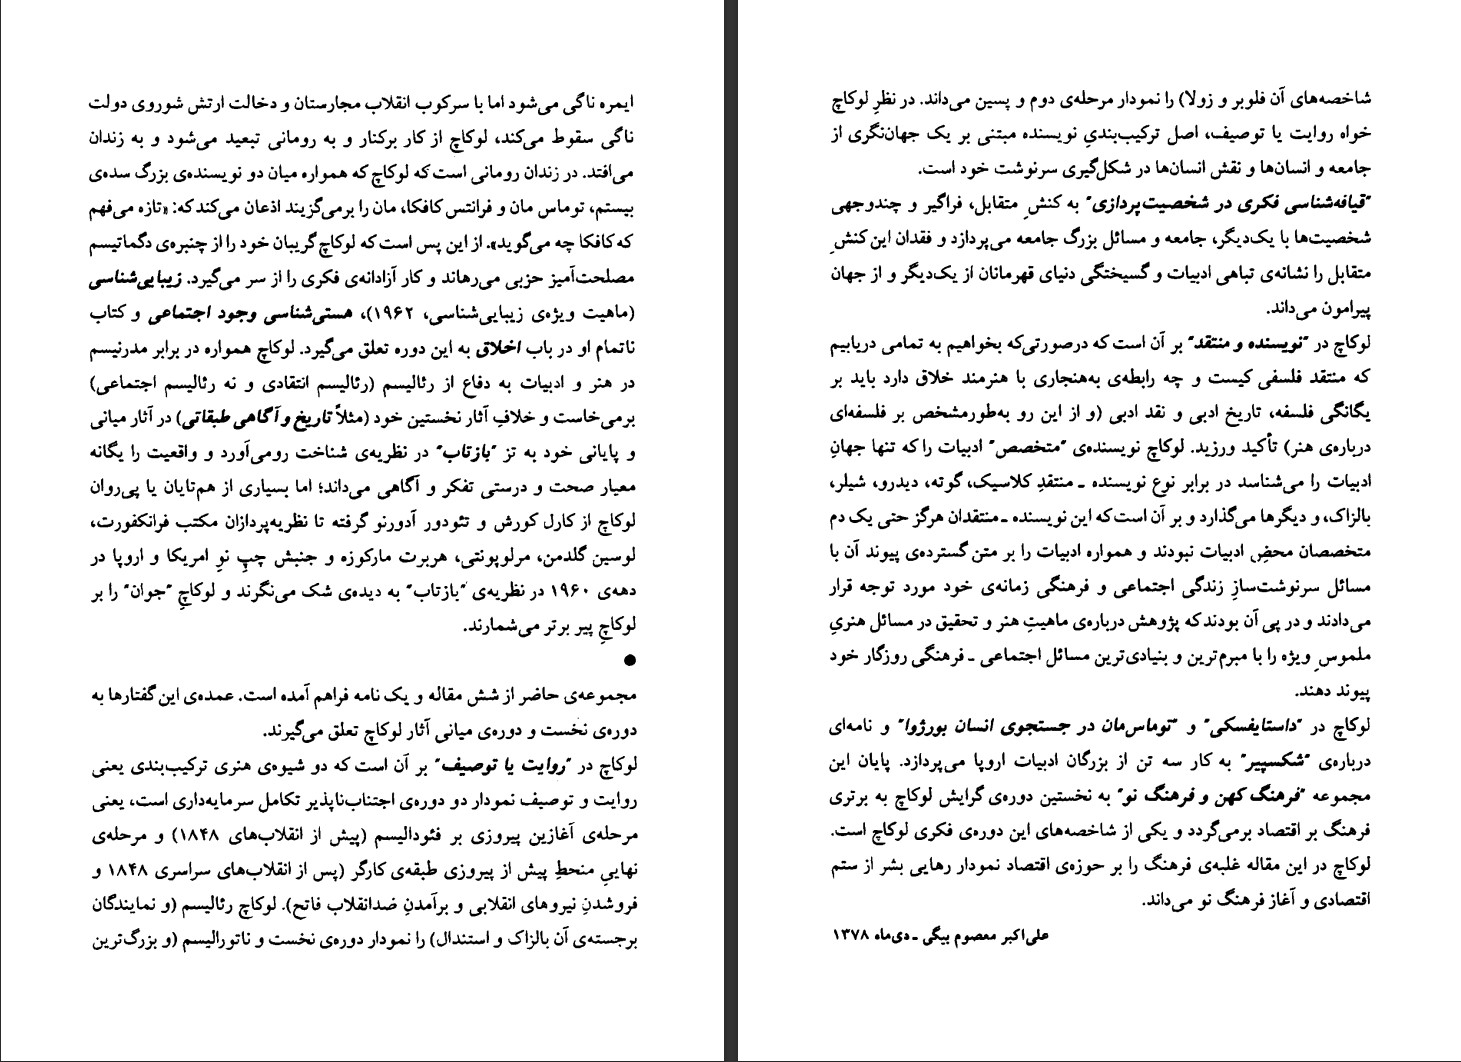 ایمره ناگی می‌شود اما با سرکوب انقلاب مجارستان و دخالت ارتش شوروی دولت
ناگی سقوط می‌کند، لوکاچ از کار برکنار و به رومانی تبعید می‌شود و به زندان
می‌افتد. در زندان رومانی است که لوکاچ که همواره میان دو نویسنده‌ی بزرگ سده‌ی
بیستم، توماس مان و فرانتس کافکا، مان را برمی‌گزیند اذعان می‌کند که: «تازه می‌فهم
که کافکا چه می‌گوید». از این پس است که لوکاچ گریبان خود را از چنبره‌ی دگماتیسم
مصلحت‌آمیز حزبی می‌رهاند و کار آزادانه‌ی فکری را از سر می‌گیرد. زیبایی‌شناسی
(ماهیت ویژه‌ی زیبایی‌شناسی، ۱۹۶۲)، هستی‌شناسی وجود اجتماعی و کتاب
ناتمام او در باب اخلاق به این دوره تعلق می‌گیرد. لوکاچ همواره در برابر مدرنیسم
در هنر و ادبیات به دفاع از رئالیسم (رئالیسم انتقادی و نه رئالیسم اجتماعی)
برمی‌خاست و خلافِ آثار نخستین خود (مثلاً تاریخ و آگاهی طبقاتی) در آثار میانی
و پایانی خود به تز "بازتاب" در نظریه‌ی شناخت رومی‌آورد و واقعیت را یگانه
معیار صحت و درستی تفکر و آگاهی می‌داند؛ اما بسیاری از هم‌تایان یا پی‌روان
لوکاچ از کارل کورش و تئودور آدورنو گرفته تا نظریه‌پردازان مکتب فرانکفورت،
لوسین گلدمن، مرلوپونتی، هربرت مارکوزه و جنبش چپِ نوِ امریکا و اروپا در
دهه‌ی ۱۹۶۰ در نظریه‌ی "بازتاب" به دیده‌ی شک می‌نگرند و لوکاچِ "جوان" را بر
لوکاچِ پیر برتر می‌شمارند.
●
مجموعه‌ی حاضر از شش مقاله و یک نامه فراهم آمده است. عمده‌ی این گفتارها به
دوره‌ی نخست و دوره‌ی میانی آثار لوکاچ تعلق می‌گیرند.
لوکاچ در "روایت یا توصیف" بر آن است که دو شیوه‌ی هنری ترکیب‌بندی یعنی
روایت و توصیف نمودار دو دوره‌ی اجتناب‌ناپذیر تکامل سرمایه‌داری است، یعنی
مرحله‌ی آغازین پیروزی بر فئودالیسم (پیش از انقلاب‌های ۱۸۴۸) و مرحله‌ی
نهاییِ منحطِ پیش از پیروزی طبقه‌ی کارگر (پس از انقلاب‌های سراسری ۱۸۴۸ و
فروشدنِ نیروهای انقلابی و برآمدنِ ضدانقلاب فاتح). لوکاچ رئالیسم (و نمایندگان
برجسته‌ی آن بالزاک و استندال) را نمودار دوره‌ی نخست و ناتورالیسم (و بزرگ‌ترین
شاخصه‌های آن فلوبر و زولا) را نمودار مرحله‌ی دوم و پسین می‌داند. در نظرِ لوکاچ
خواه روایت یا توصیف، اصل ترکیب‌بندیِ نویسنده مبتنی بر یک جهان‌نگری از
جامعه و انسان‌ها و نقش انسان‌ها در شکل‌گیری سرنوشت خود است.
"قیافه‌شناسی فکری در شخصیت‌پردازی" به کنشِ متقابل، فراگیر و چندوجهی
شخصیت‌ها با یک‌دیگر، جامعه و مسائل بزرگ جامعه می‌پردازد و فقدان این کنشِ
متقابل را نشانه‌ی تباهی ادبیات و گسیختگی دنیای قهرمانان از یک‌دیگر و از جهان
پیرامون می‌داند.
لوکاچ در "نویسنده و منتقد" بر آن است که درصورتی‌که بخواهیم به تمامی دریابیم
که منتقد فلسفی کیست و چه رابطه‌ی به‌هنجاری با هنرمند خلاق دارد باید بر
یگانگی فلسفه، تاریخ ادبی و نقد ادبی (و از این رو به‌طورمشخص بر فلسفه‌ای
درباره‌ی هنر) تأکید ورزید. لوکاچ نویسنده‌ی "متخصص" ادبیات را که تنها جهانِ
ادبیات را می‌شناسد در برابر نوع نویسنده ـ منتقدِ کلاسیک، گوته، دیدرو، شیلر،
بالزاک، و دیگرها می‌گذارد و بر آن است که این نویسنده ـ منتقدان هرگز حتی یک دم
متخصصان محضِ ادبیات نبودند و همواره ادبیات را بر متن گسترده‌ی پیوند آن با
مسائل سرنوشت‌سازِ زندگی اجتماعی و فرهنگی زمانه‌ی خود مورد توجه قرار
می‌دادند و در پی آن بودند که پژوهش درباره‌ی ماهیتِ هنر و تحقیق در مسائل هنریِ
ملموسِ ویژه را با مبرم‌ترین و بنیادی‌ترین مسائل اجتماعی ـ فرهنگی روزگار خود
پیوند دهند.
لوکاچ در "داستایفسکی" و "توماس‌مان در جستجوی انسان بورژوا" و نامه‌ای
درباره‌ی "شکسپیر" به کار سه تن از بزرگان ادبیات اروپا می‌پردازد. پایان این
مجموعه "فرهنگ کهن و فرهنگ نو" به نخستین دوره‌ی گرایش لوکاچ به برتری
فرهنگ بر اقتصاد برمی‌گردد و یکی از شاخصه‌های این دوره‌ی فکری لوکاچ است.
لوکاچ در این مقاله غلبه‌ی فرهنگ را بر حوزه‌ی اقتصاد نمودار رهایی بشر از ستم
اقتصادی و آغاز فرهنگ نو می‌داند.
علی‌اکبر معصوم بیگی ـ دی‌ماه ۱۳۷۸